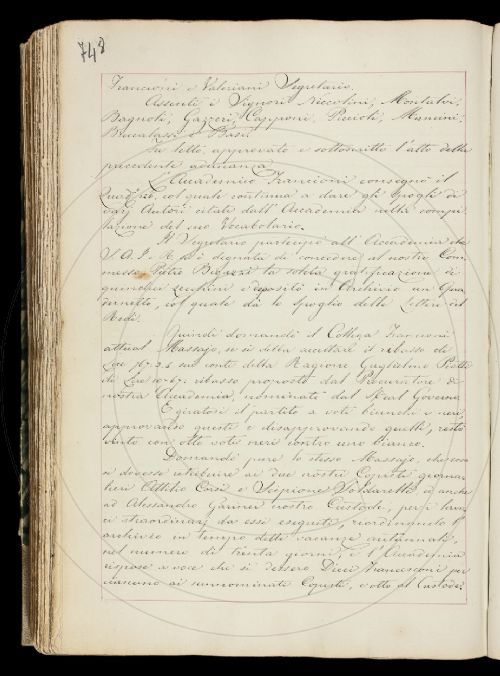 748
Francioni e Valeriani Segretario.
Assenti i Signori Niccolini, Montalvi,
Bagnoli, Gazzeri, Capponi, Puccioli, Mancini,
Brucalassi e Basi.
Fu letto, approvato e sottoscritto l'atto della
precedente adunanza.
L'Accademico Francioni consegnò il
col quale continua a dare gli spogli di
varj Autori citati dall'Accademia nella compi
lazione del suo Vocabolario.
Il Segretario partecipò all'Accademia che
S.A.I. e R. si è degnata di concedere al nostro Com
messo Pietro la solita gratificazione di
quindici zecchini e depositò in Archivio un Qua
dernetto, col quale dà lo spoglio delle Lettere del
Redi.
Quindi domandò il Collega Francioni
attual Massajo, se si debba accettare il ribasso di
Lire sul conto della Ragione Guglielmo Piatti
di Lire ribasso proposto dal Procuratore di
nostra Accademia, nominato dal Real Governo
E giratosi il partito a voti bianchi e neri,
approvando questi e disapprovando quelli, restò
vinto con otto voti neri contro uno bianco.
Domandò pure lo stesso Massajo, che cosa
si dovesse retribuire ai due nostri Copisti giorna
lieri Attilio Corsi e Scipione Soldaretti ed anche
ad Alessandro nostro Custode, per i lavo
ri straordinarj da essi eseguiti, riordinando l'
archivio in tempo delle vacanze autunnali,
nel numero di trenta giorni, e l'Accademia
rispose a voce che si dessero Dieci Francesconi per
ciascuno ai summominati Copisti, e otto al Custode.